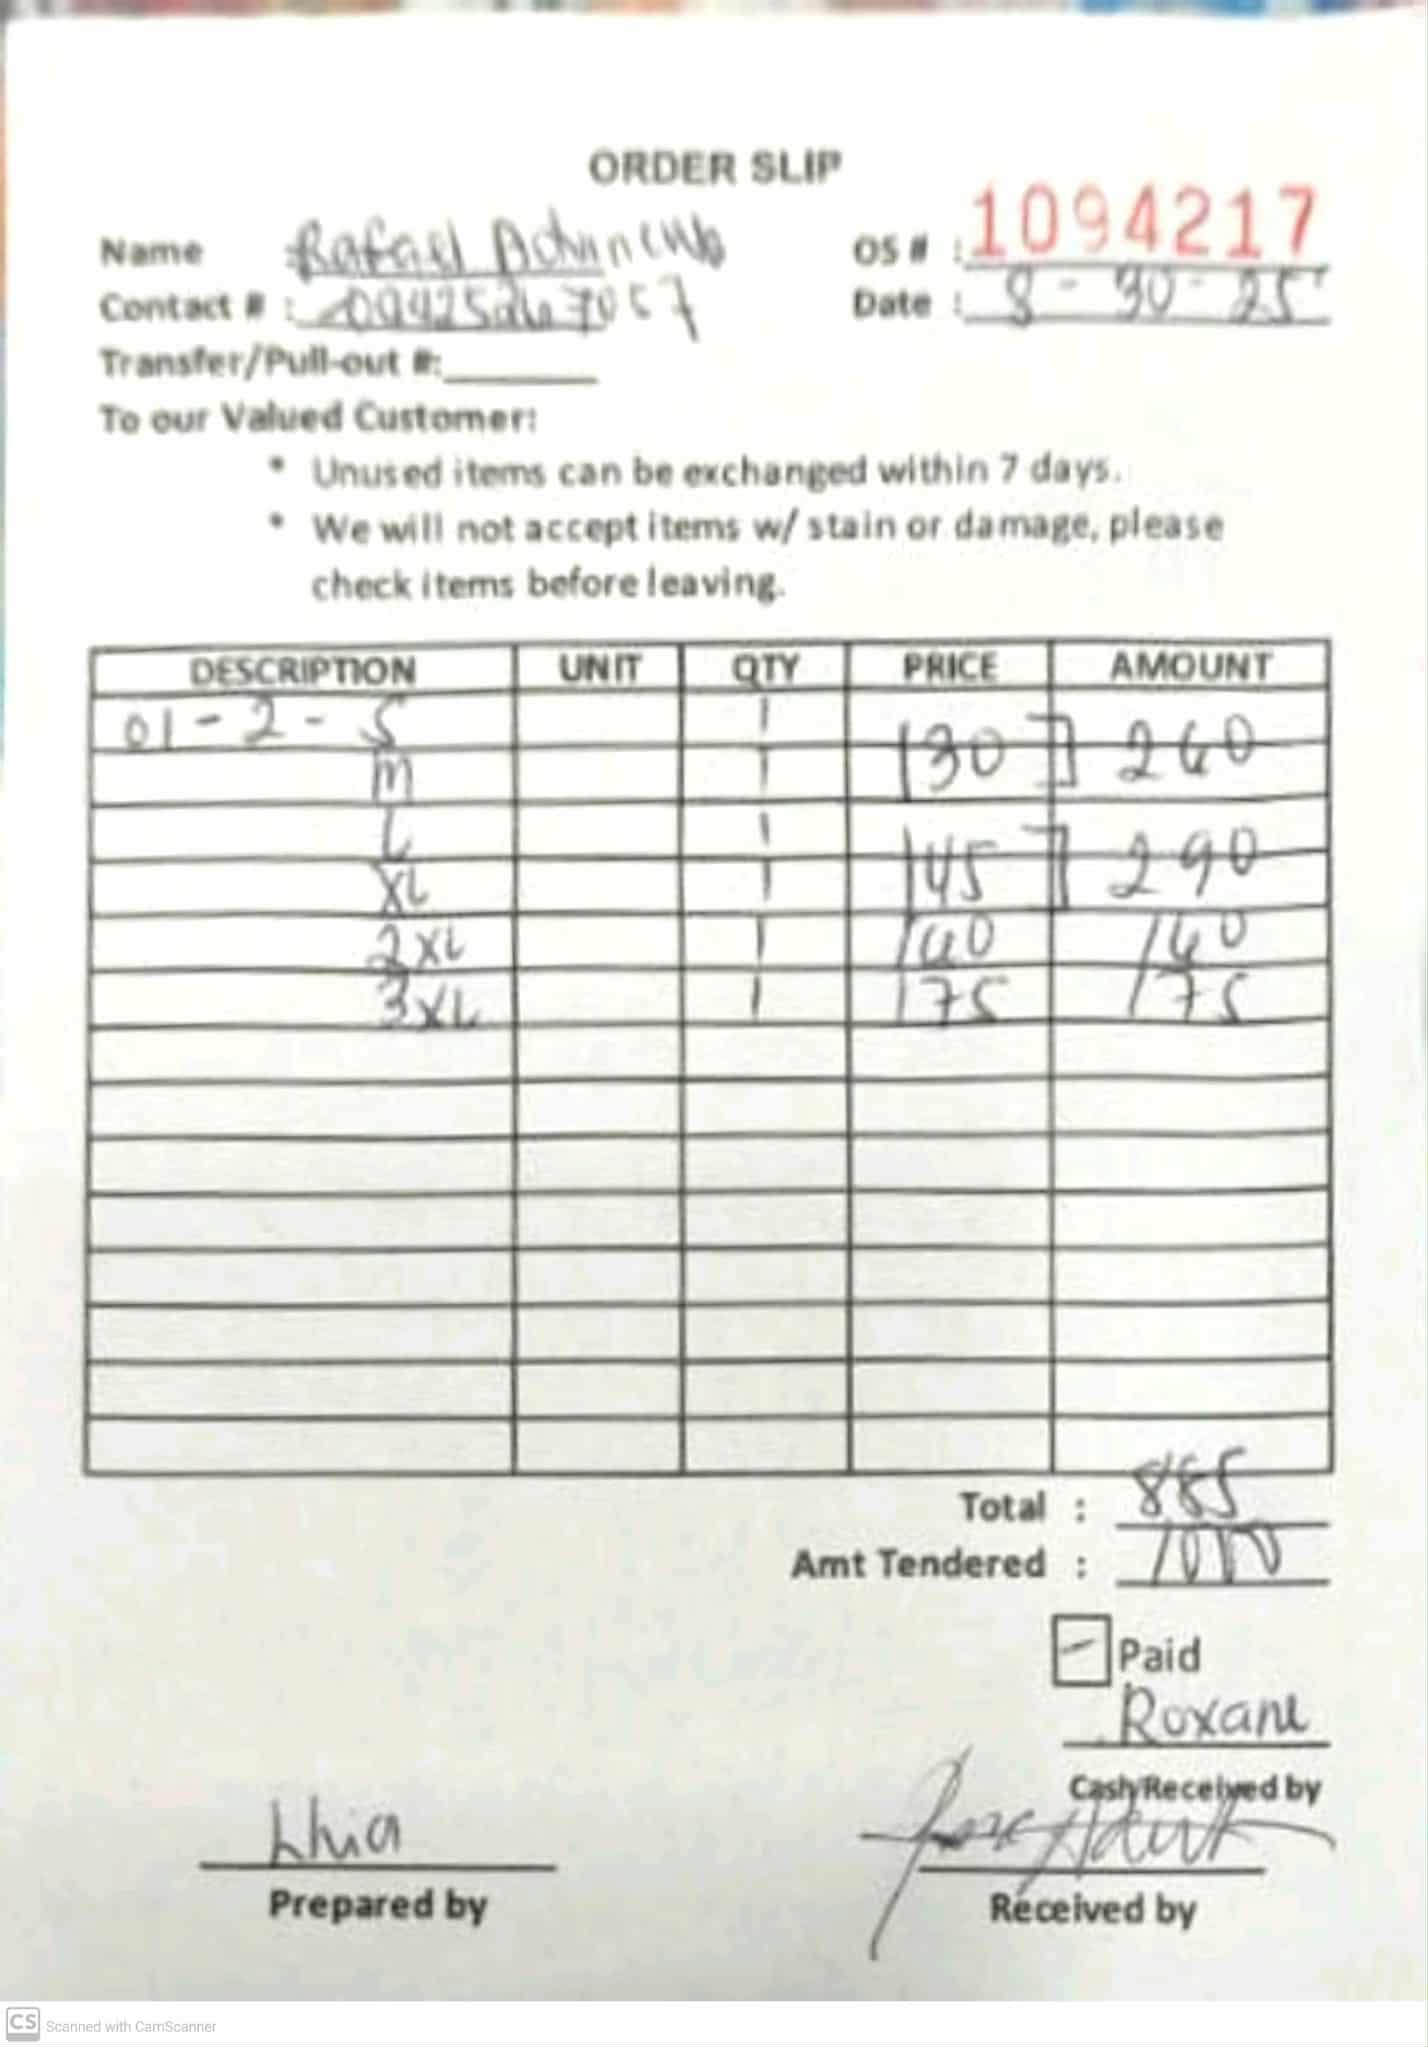 ORDER SLIP
Name : Rafael OS # : 1094217
Contact # : Date : 8-30-25
Transfer/Pull-out #:
To our Valued Customer:
* Unused items can be exchanged within 7 days.
* We will not accept items w/ stain or damage, please
check items before leaving.
DESCRIPTION UNIT QTY PRICE AMOUNT
01-2-S 1
M 1 130 ] 260
L 1
XL 1 145 ] 290
2XL 1 160 160
3XL 1 175 175
Total : 885
Amt Tendered : 1000
Paid
Roxane
Cash Received by
Lhia
Prepared by Received by
CS Scanned with CamScanner